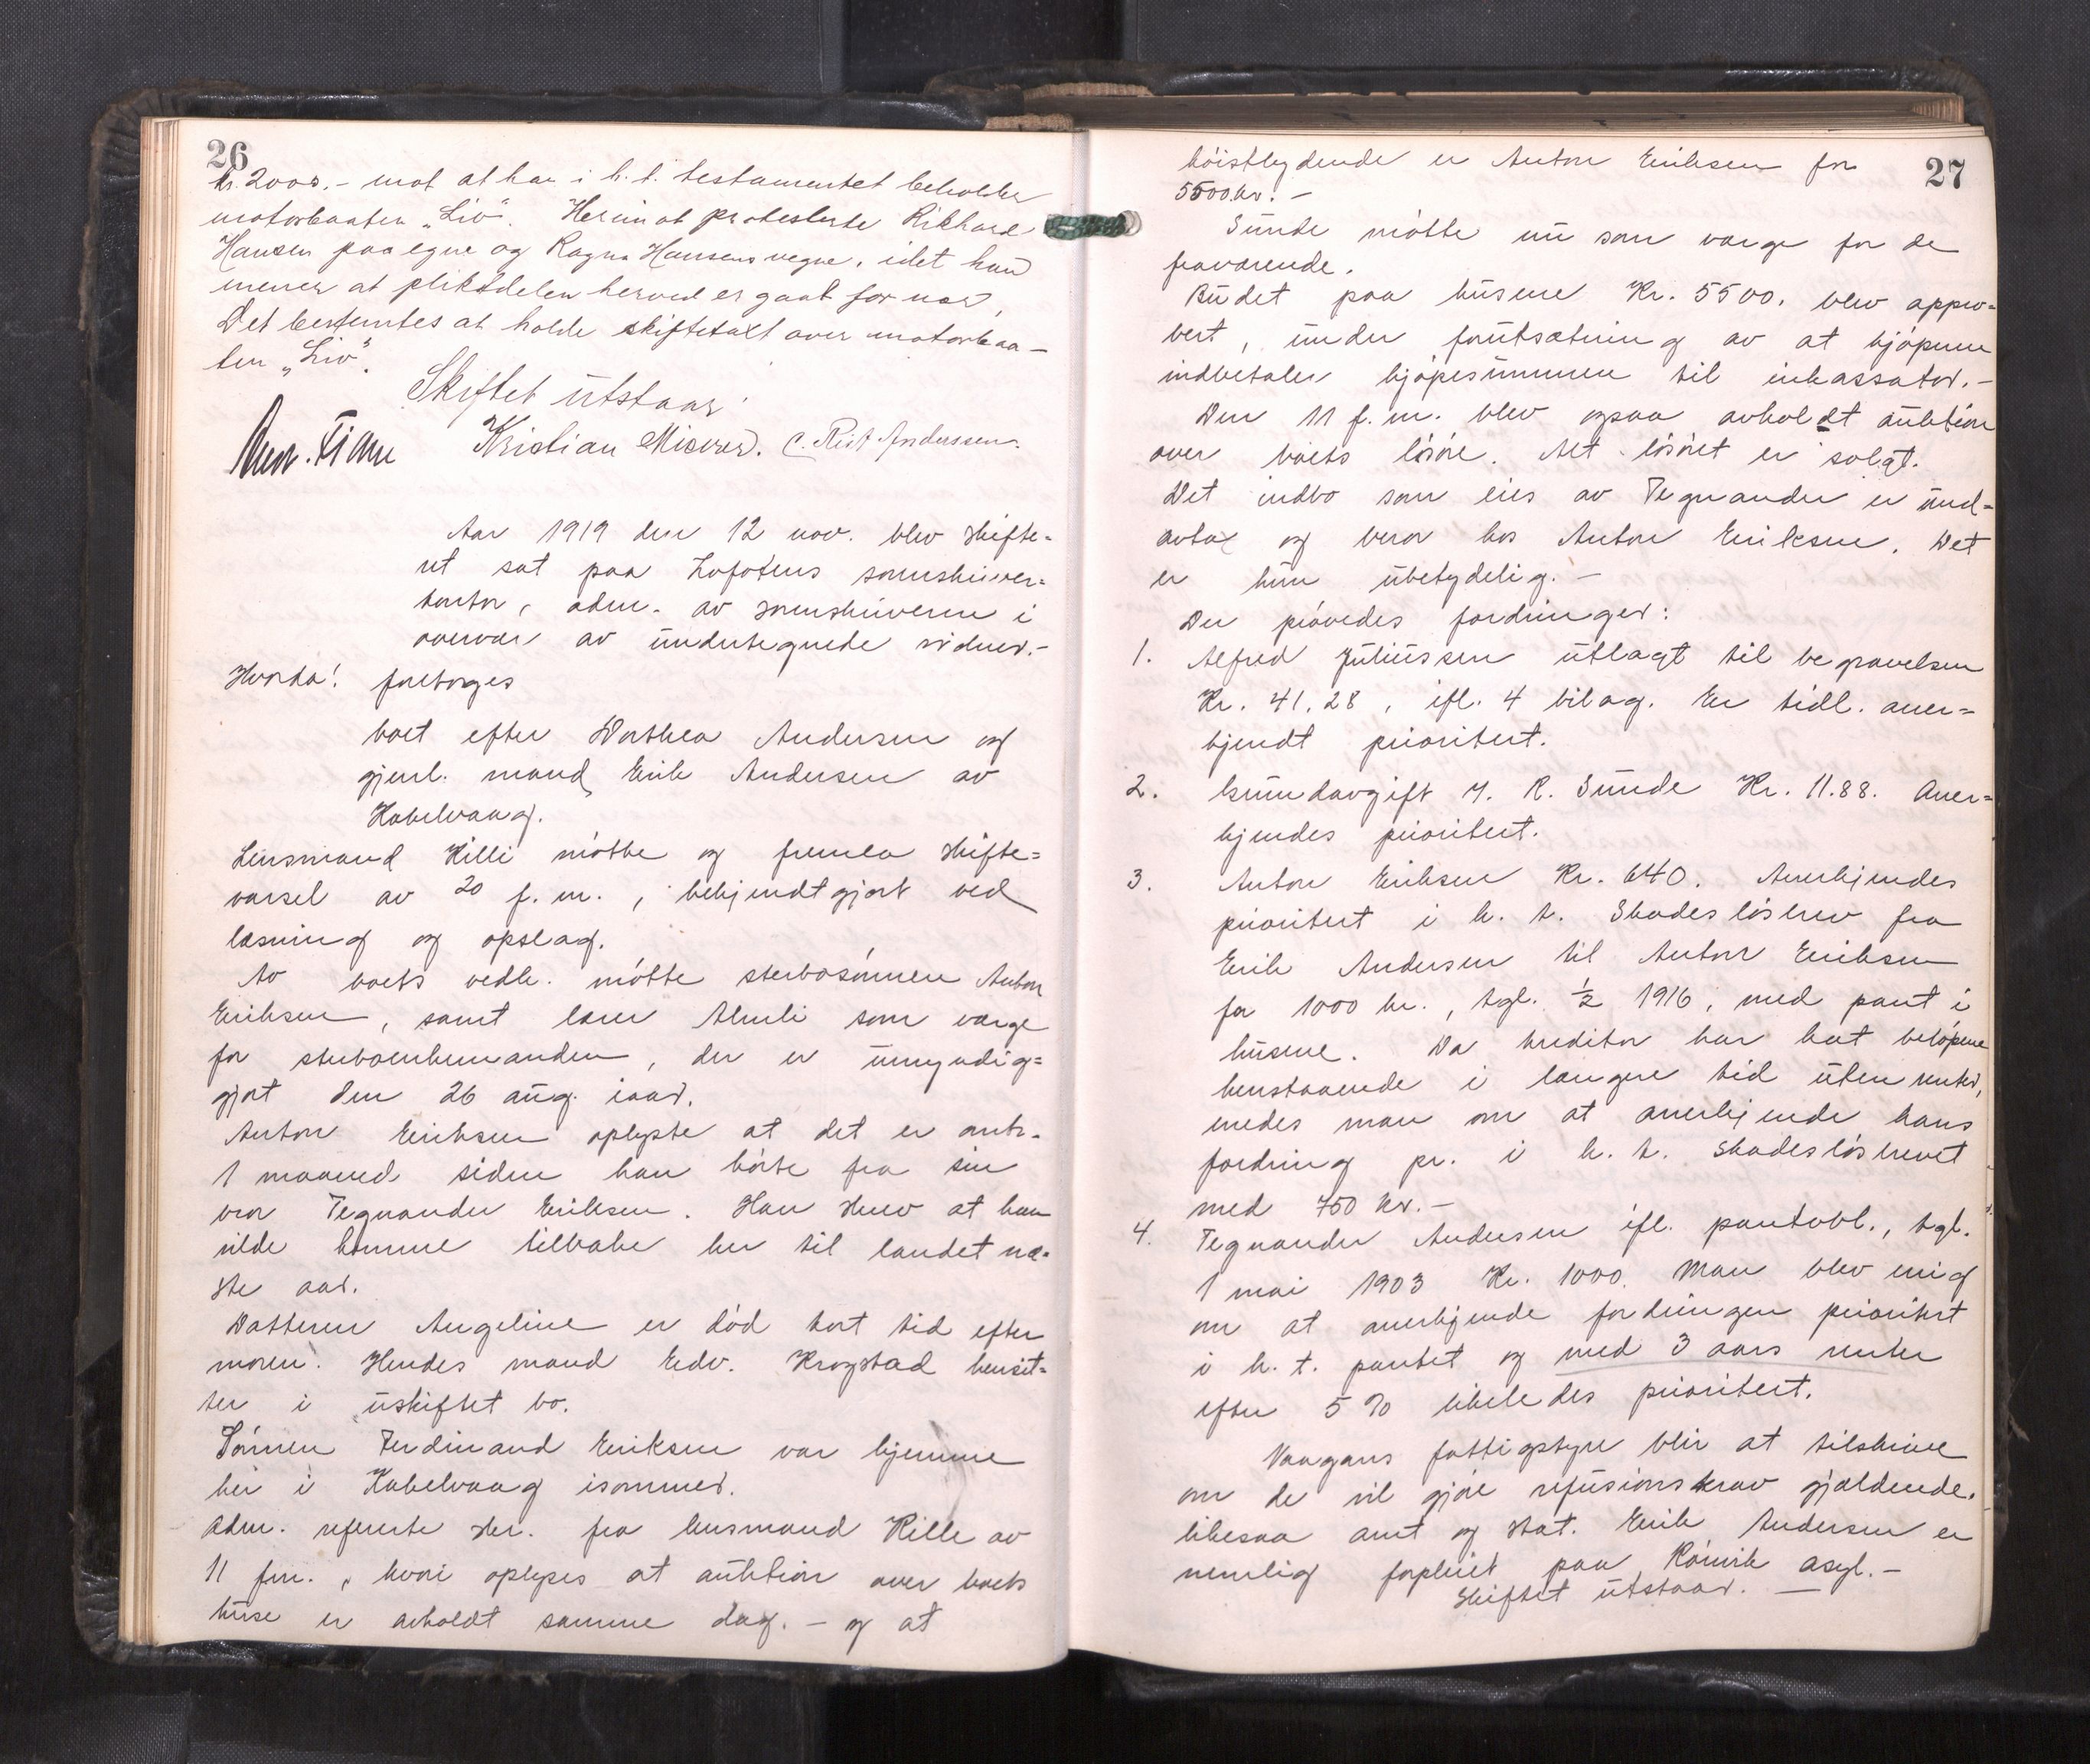 26
kr. 2000.- mot at han i h. t. testamentet beholder
motorbaaten „Liv". Herimot protesterte Rikhard
Hansen paa egne og Ragna Hansens vegne, idet han
mener at pliktdelen herved er gaat for nær,
Det bestemtes at holde skiftetakt over motorbaa-
ten „Liv".
Skiftet utstaar.
Kristian C. Anderssen.
Aar 1919 den 12 nov. blev skifte-
ret sat paa Lofotens sorenskriver-
kontor, adm. av sorenskriveren i
overvær av undertegnede vidner.-
Hvorda! foretoges
boet efter Dorthea Andersen og
gjenl. mand, Erik Andersen av
Kabelvaag.
Lensmand Kille møtte og fremla skifte=
varsel av 20 f. m., bekjendtgjort ved
læsning og opslag.
Av boets vedk. møtte sterbosønnen Anton
Eriksen, samt lærer som verge
for sterboenkemanden, der er umyndig=
gjort den 26 aug. iaar.
Anton Eriksen oplyste at det er omtr.
1 maaned siden han hørte fra sin
bror Tegnander Eriksen. Han skrev at han
vilde komme tilbake her til landet næ-
ste aar.
Datteren Angeline er død kort tid efter
moren. Hendes mand Edv. Krogstad hensit=
ter i uskiftet bo.
Sønnen Ferdinand Eriksen var hjemme
her i Kabelvaag isommer.
Adm. refererte skr. fra lensmand Kille av
11 f.m., hvori oplyses at auktion over boets
huse er avholdt samme dag. - og at
27
høistbydende er Anton Eriksen for
5500 kr. -
Sunde møtte nu som verge for de
fraværende.
Budet paa husene Kr. 5500. blev appro=
bert, under forutsætning av at kjøperen
indbetaler kjøpesummen til inkassator.-
Den 11 f. m. blev ogsaa avholdt auktion
over boets løsøre. Alt løsøret er solgt.
Det indbo som eies av Tegnander er und=
tat og beror hos Anton Eriksen. Det
er kun ubetydelig. -
Der prøvedes fordringer:
1. Alfred Juliussen utlagt til begravelsen
Kr. 41.28, ifl. 4 bilag. Er tidl. aner=
kjendt prioritert.
2. Grundavgift R. Sunde Kr. 11.88. Aner=
kjendes prioritert.
3. Anton Eriksen Kr. 640. Anerkjendes
prioritert i h. t. Skadesløsbrev fra
Erik Andersen til Anton Eriksen
for 1000 kr., tgl. ½ 1916, med pant i
husene. Da kreditor har hat beløpene
henstaaende i længere tid uten renter,
enedes man om at anerkjende hans
fordring pr. i h. t. skadesløsbrevet
med 750 kr. -
4. Tegnander Andersen ifl. pantobl., tgl.
1 mai 1903 Kr. 1000. Man blev enig
om at anerkjende fordringen prioritert
i h. t. pantet og med 3 aars renter
efter 5 % likeledes prioritert.
Vaagans fattigstyre blir at tilskrive
om de vil gjøre refusionskrav gjældende.
likesaa amt og stat. Erik Andersen er
nemlig forpleiet paa Rønvik asyl. -
Skiftet utstaar. -